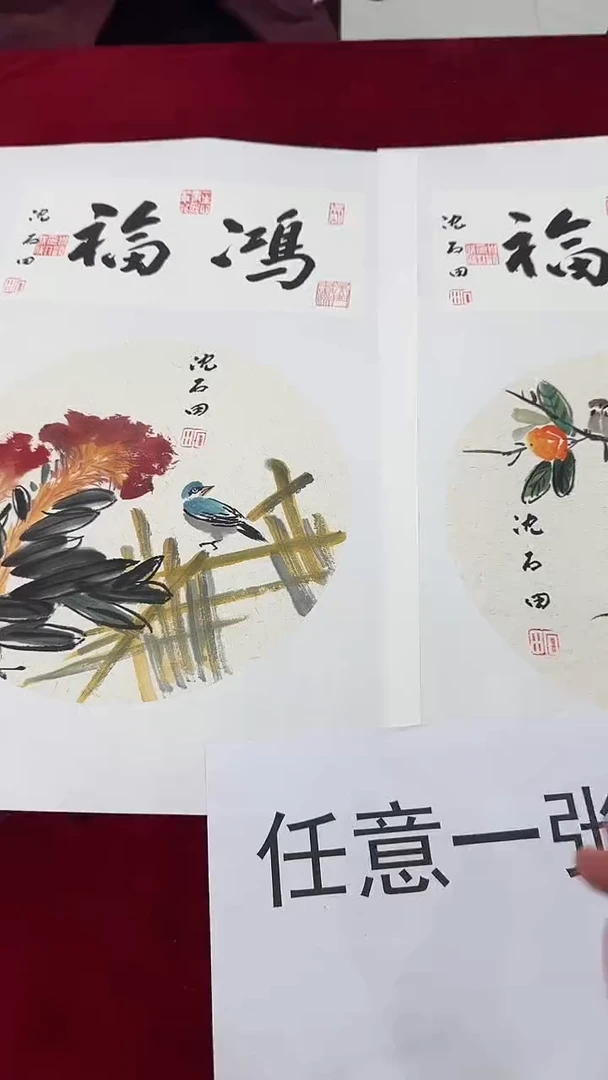 鸿福
沈石田
沈石田
福
沈石田
沈石田
任意一张